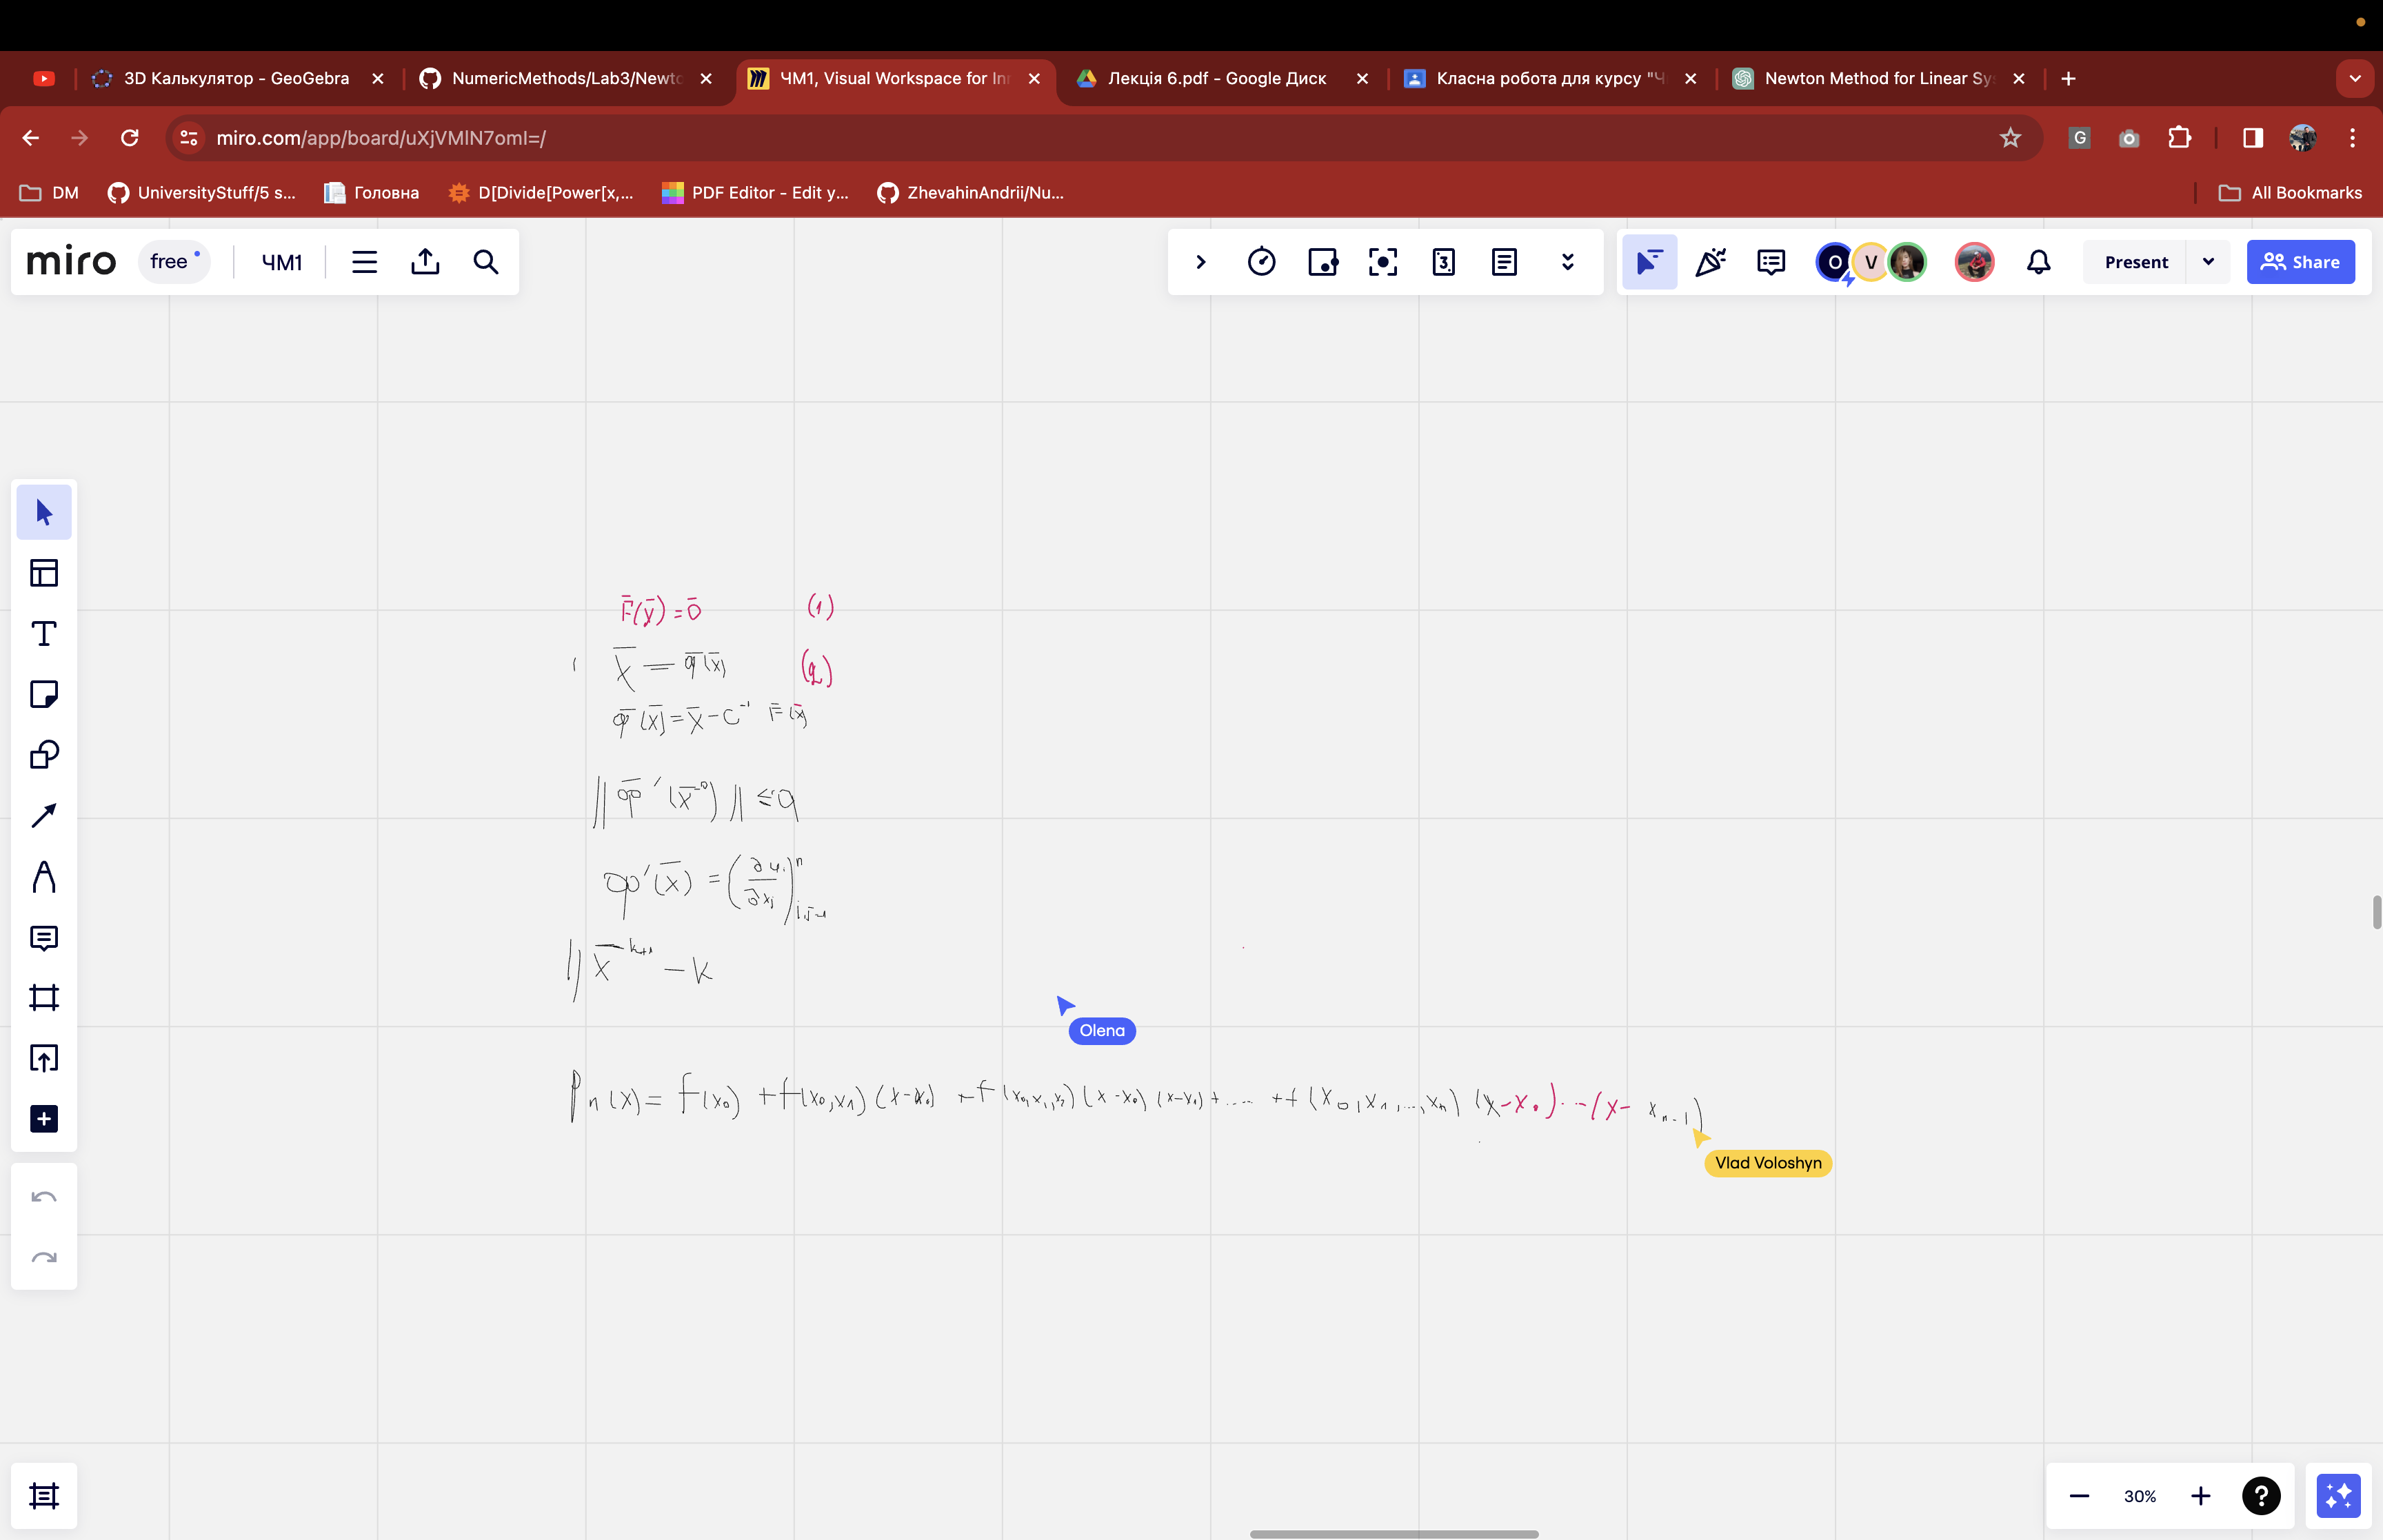 3D Калькулятор - GeoGebra
NumericMethods/Lab3/Newto
ЧМ1, Visual Workspace for Inn
Лекція 6.pdf - Google Диск
Класна робота для курсу "Ч
Newton Method for Linear Sys
miro.com/app/board/uXjVMlN7omI=/
G
DM
UniversityStuff/5 s...
Головна
D[Divide[Power[x,...
PDF Editor - Edit y...
ZhevahinAndrii/Nu...
All Bookmarks
miro
free
ЧМ1
3
O
V
Present
Share
F̄(x̄) = 0̄ (1)
x̄ = φ̄(x̄) (2)
φ̄(x̄) = x̄ - C⁻¹ F̄(x̄)
|| φ̄′(x̄⁰) || ≤ q
φ′(x̄) = (∂φᵢ/∂xⱼ)ⁿᵢ,ⱼ₌₁
|| x̄ᵏ⁺¹ - k
Olena
Pₙ(x) = f(x₀) + f(x₀,x₁)(x-x₀) + f(x₀,x₁,x₂)(x-x₀)(x-x₁)+.... + f(x₀,x₁,...,xₙ)(x-x₀)...(x-xₙ₋₁)
Vlad Voloshyn
30%
?